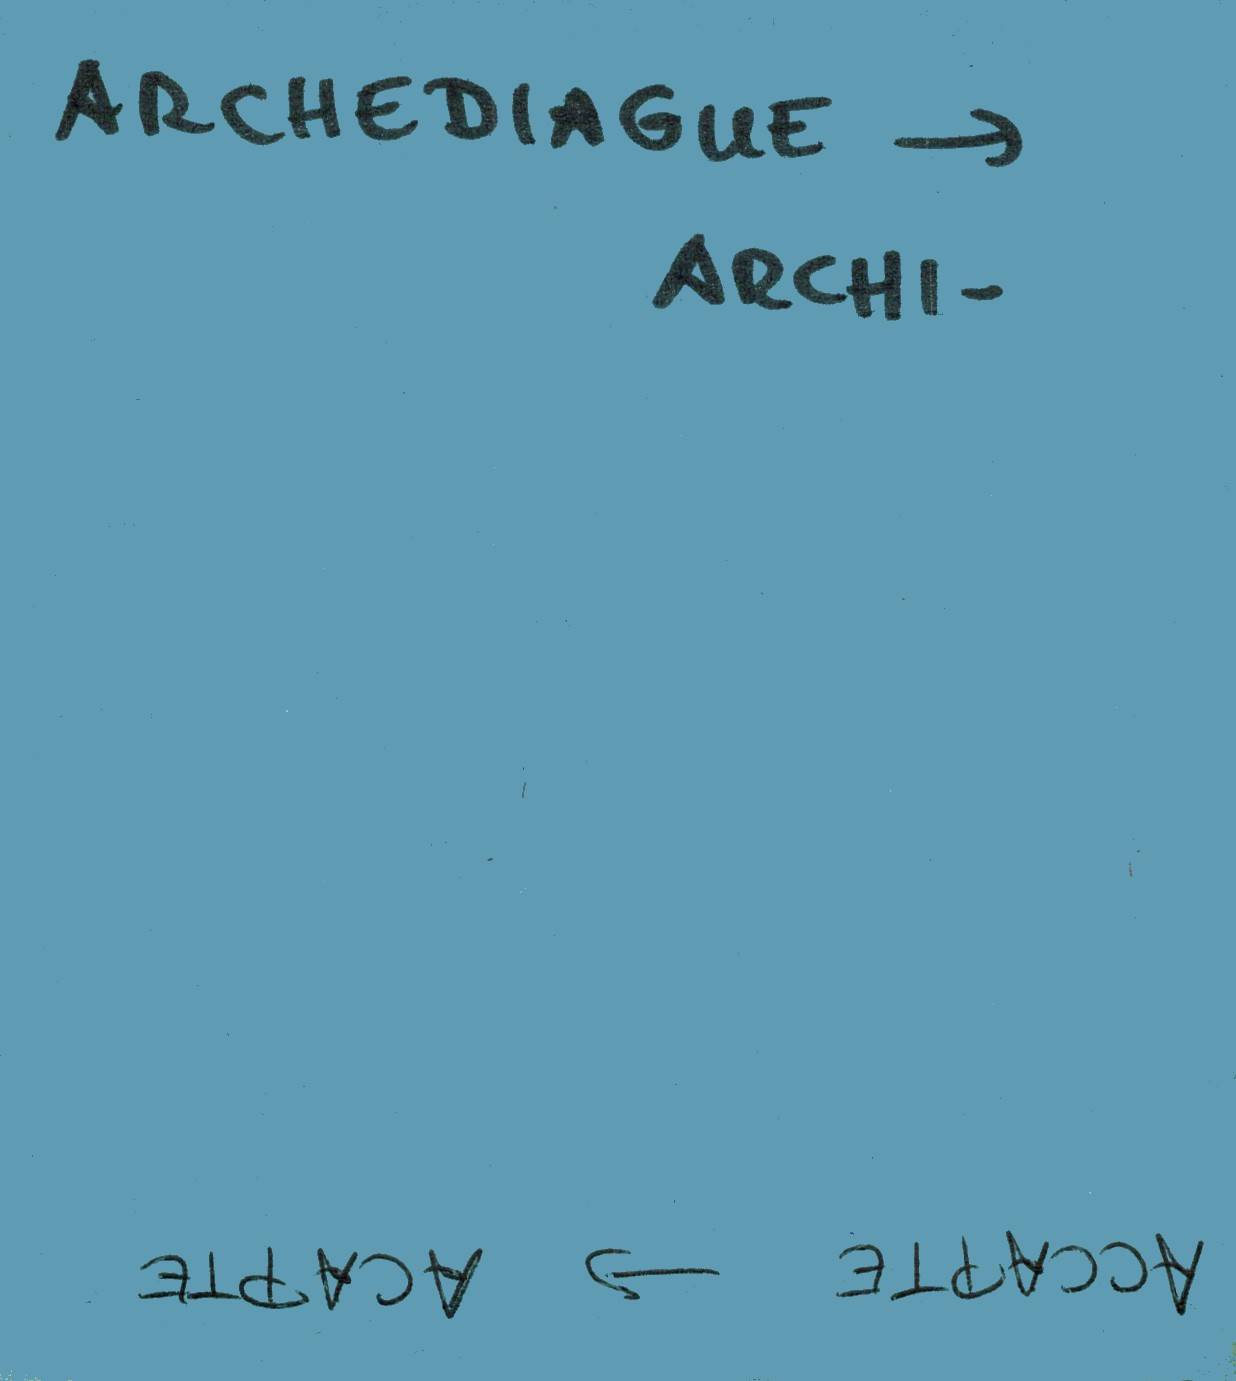 ARCHEDIAGUE →
ARCHI-
ACCAPTE → ACAPTE